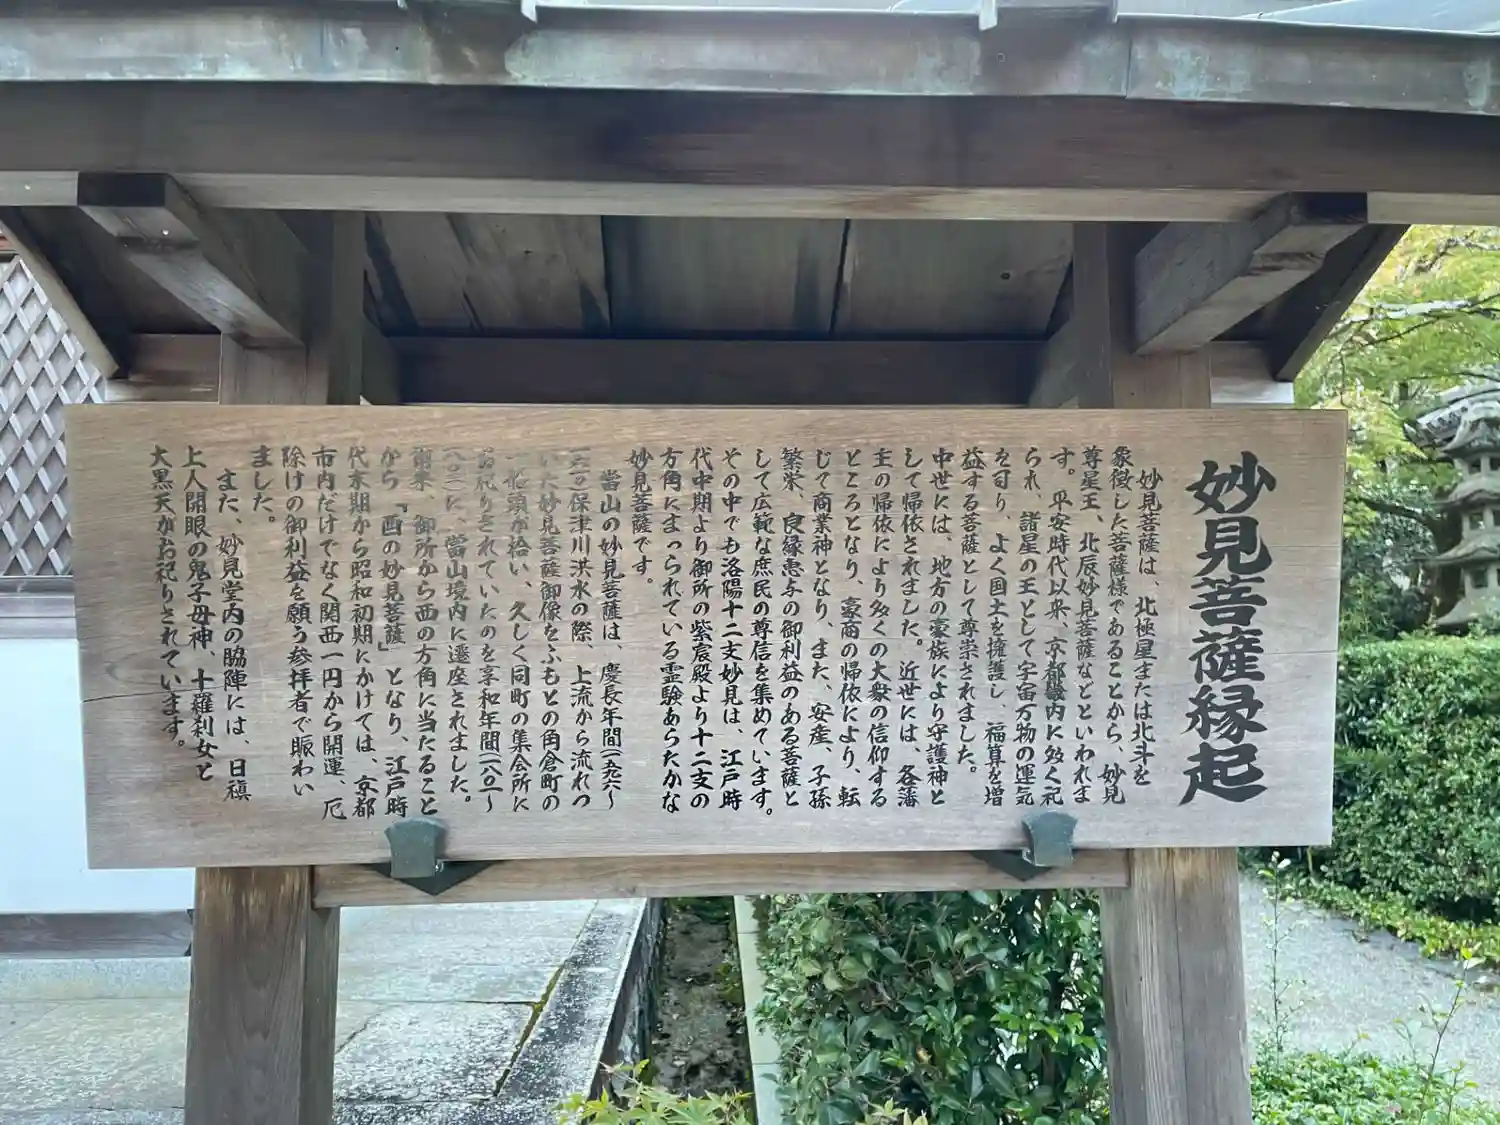 妙見菩薩縁起
妙見菩薩は、北極星または北斗を
象徴した菩薩様であることから、妙見
尊星王、北辰妙見菩薩などといわれま
す。平安時代以来、京都畿内に多く祀
られ、諸星の王として宇宙万物の運気
を司り、よく国土を擁護し、福算を増
益する菩薩として尊崇されました。
中世には、地方の豪族により守護神と
して帰依されました。近世には、各藩
主の帰依により多くの大衆の信仰する
ところとなり、豪商の帰依により、転
じて商業神となり、また、安産、子孫
繁栄、良縁恵与の御利益のある菩薩と
して広範な庶民の尊信を集めています。
その中でも洛陽十二支妙見は、江戸時
代中期より御所の紫宸殿より十二支の
方角にまつられている霊験あらたかな
妙見菩薩です。
當山の妙見菩薩は、慶長年間(一五九六〜
一六一五)保津川洪水の際、上流から流れつ
いた妙見菩薩御像をふもとの角倉町の
船頭が拾い、久しく同町の集会所に
お祀りされていたのを享和年間(一八〇一〜
一八〇三)に、當山境内に遷座されました。
爾来、御所から西の方角に当たること
から「酉の妙見菩薩」となり、江戸時
代末期から昭和初期にかけては、京都
市内だけでなく関西一円から開運、厄
除けの御利益を願う参拝者で賑わい
ました。
また、妙見堂内の脇陣には、日禛
上人開眼の鬼子母神、十羅刹女と
大黒天がお祀りされています。